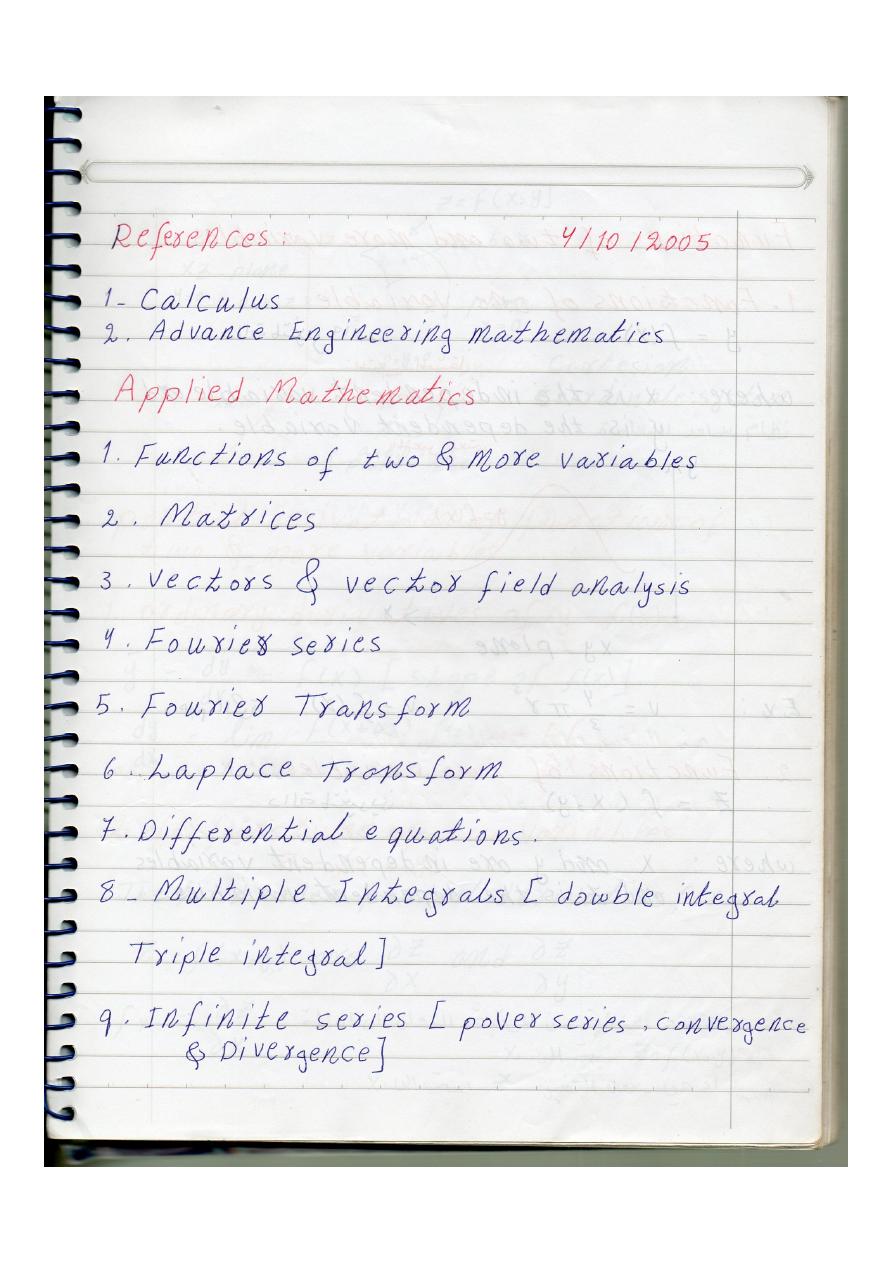 References: 4/10/2005
1- Calculus
2. Advance Engineering mathematics
Applied Mathematics
1. Functions of two & more variables
2. Matrices
3. vectors & vector field analysis
4. Fourier series
5. Fourier Transform
6. Laplace Transform
7. Differential equations.
8- Multiple Integrals [ dowble integral
Triple integral]
9. Infinite series [ pover series, convergence
& Divergence]